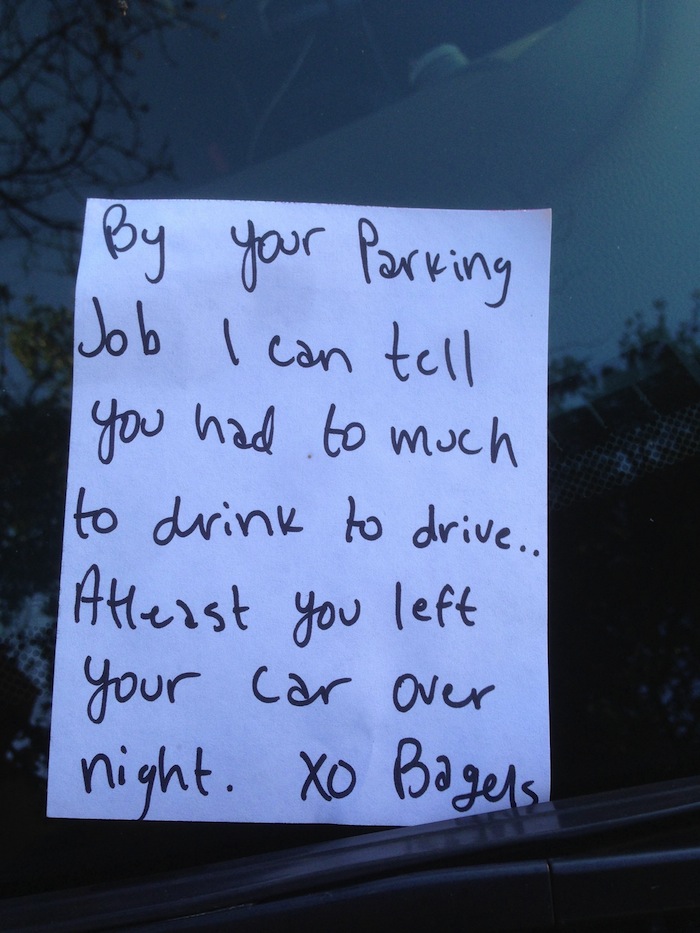 By your Parking
Job I can tell
you had to much
to drink to drive..
Atleast you left
your car over
night. XO Bagels